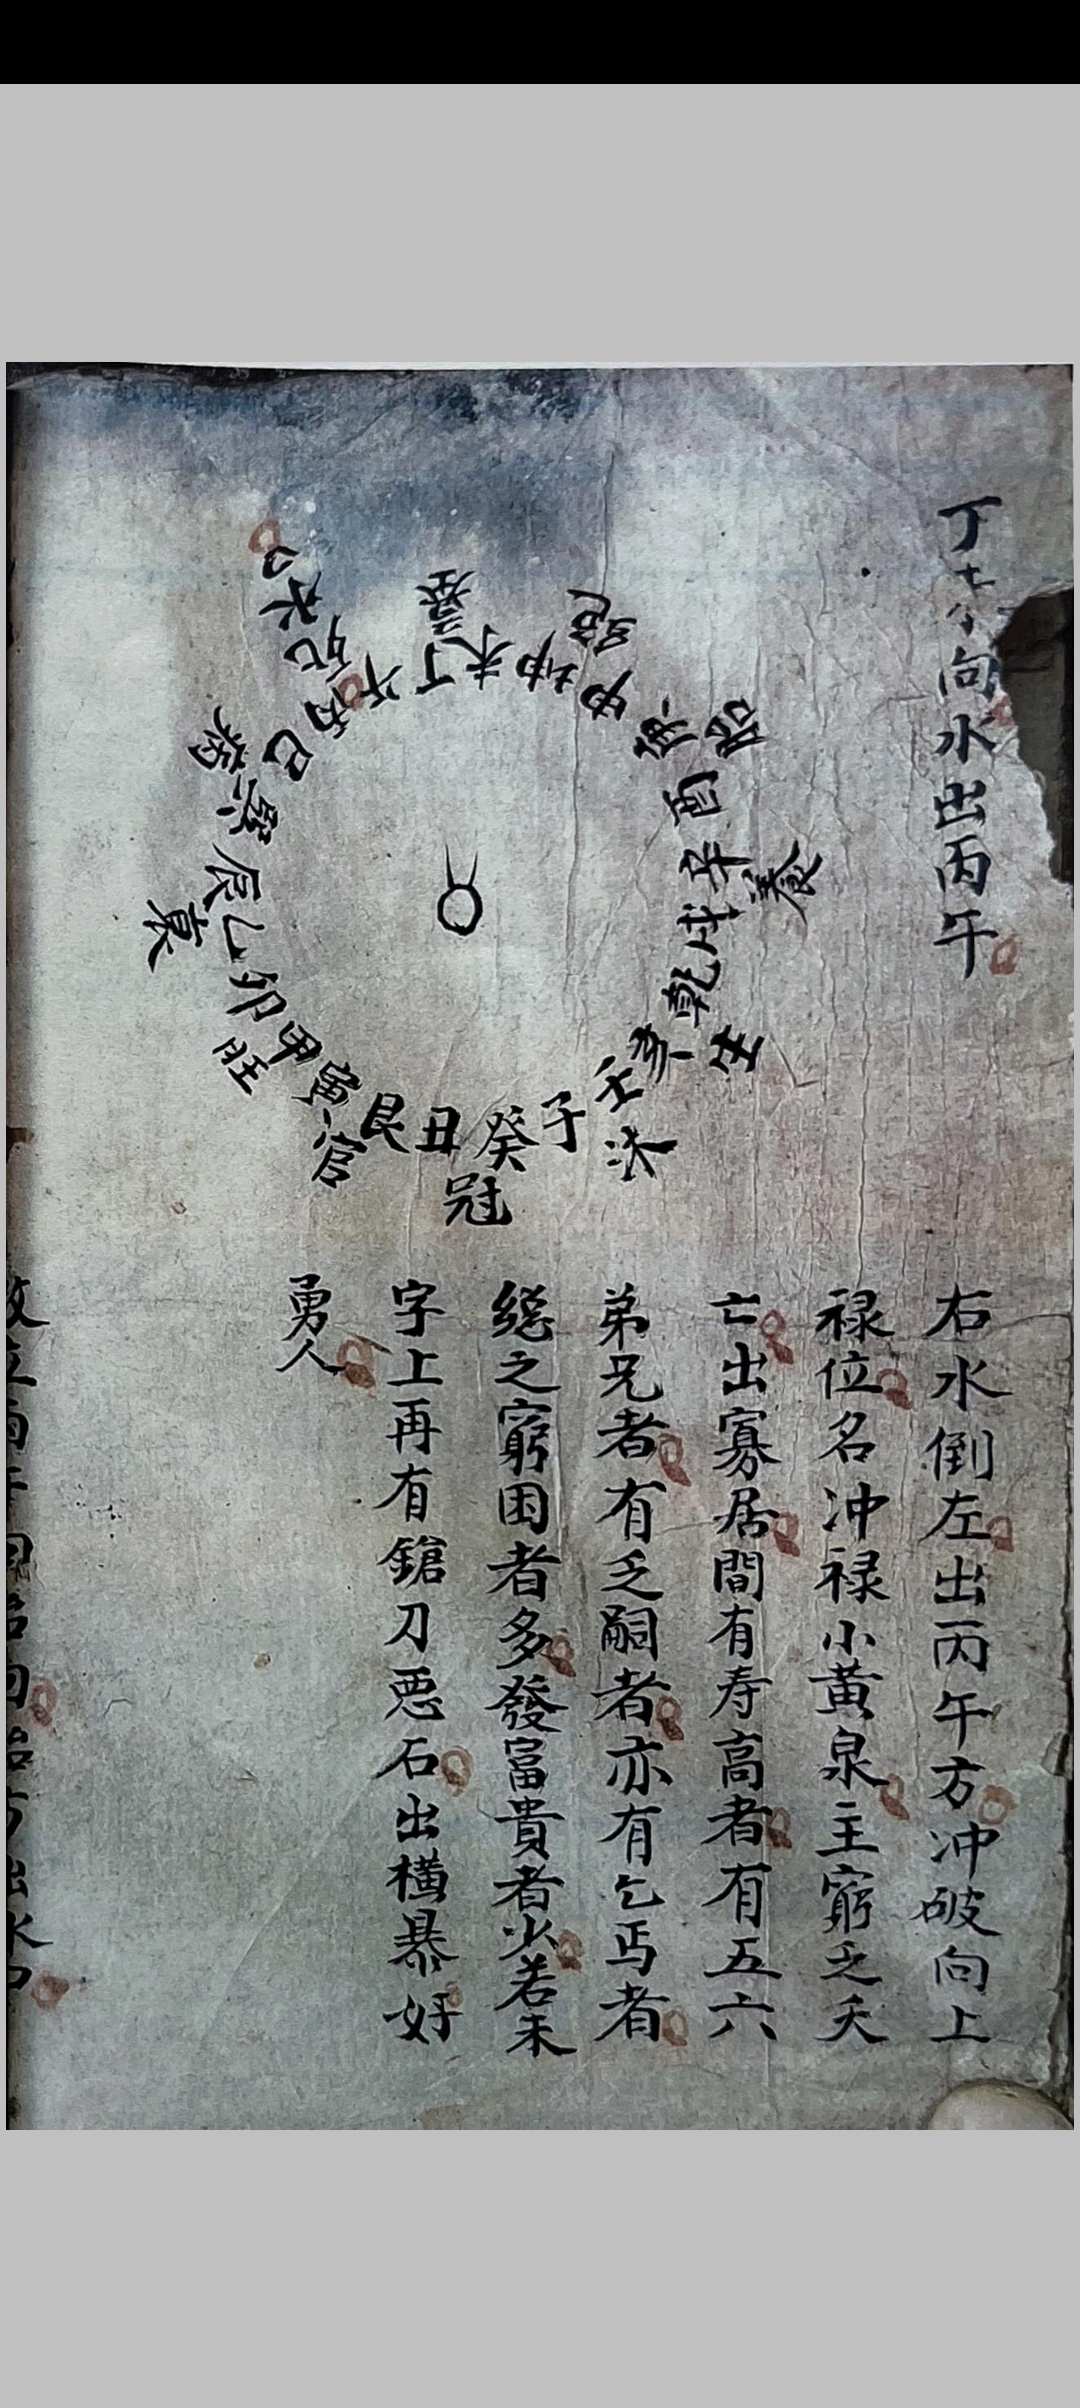 丁未向水出丙午
右水倒左出丙午方冲破向上
禄位名冲禄小黄泉主窮乏夭
亡出寡居間有寿高者有五六
弟兄者有乏嗣者亦有乞丐者
総之窮困者多發富貴者少若未
字上再有鎗刀恶石出横暴好
勇人
丁未坤申庚酉辛戌乾亥壬子癸丑艮寅甲卯乙辰巽巳丙午
墓
絶
胎
養
生
沐
冠
官
旺
衰
病
死
水口